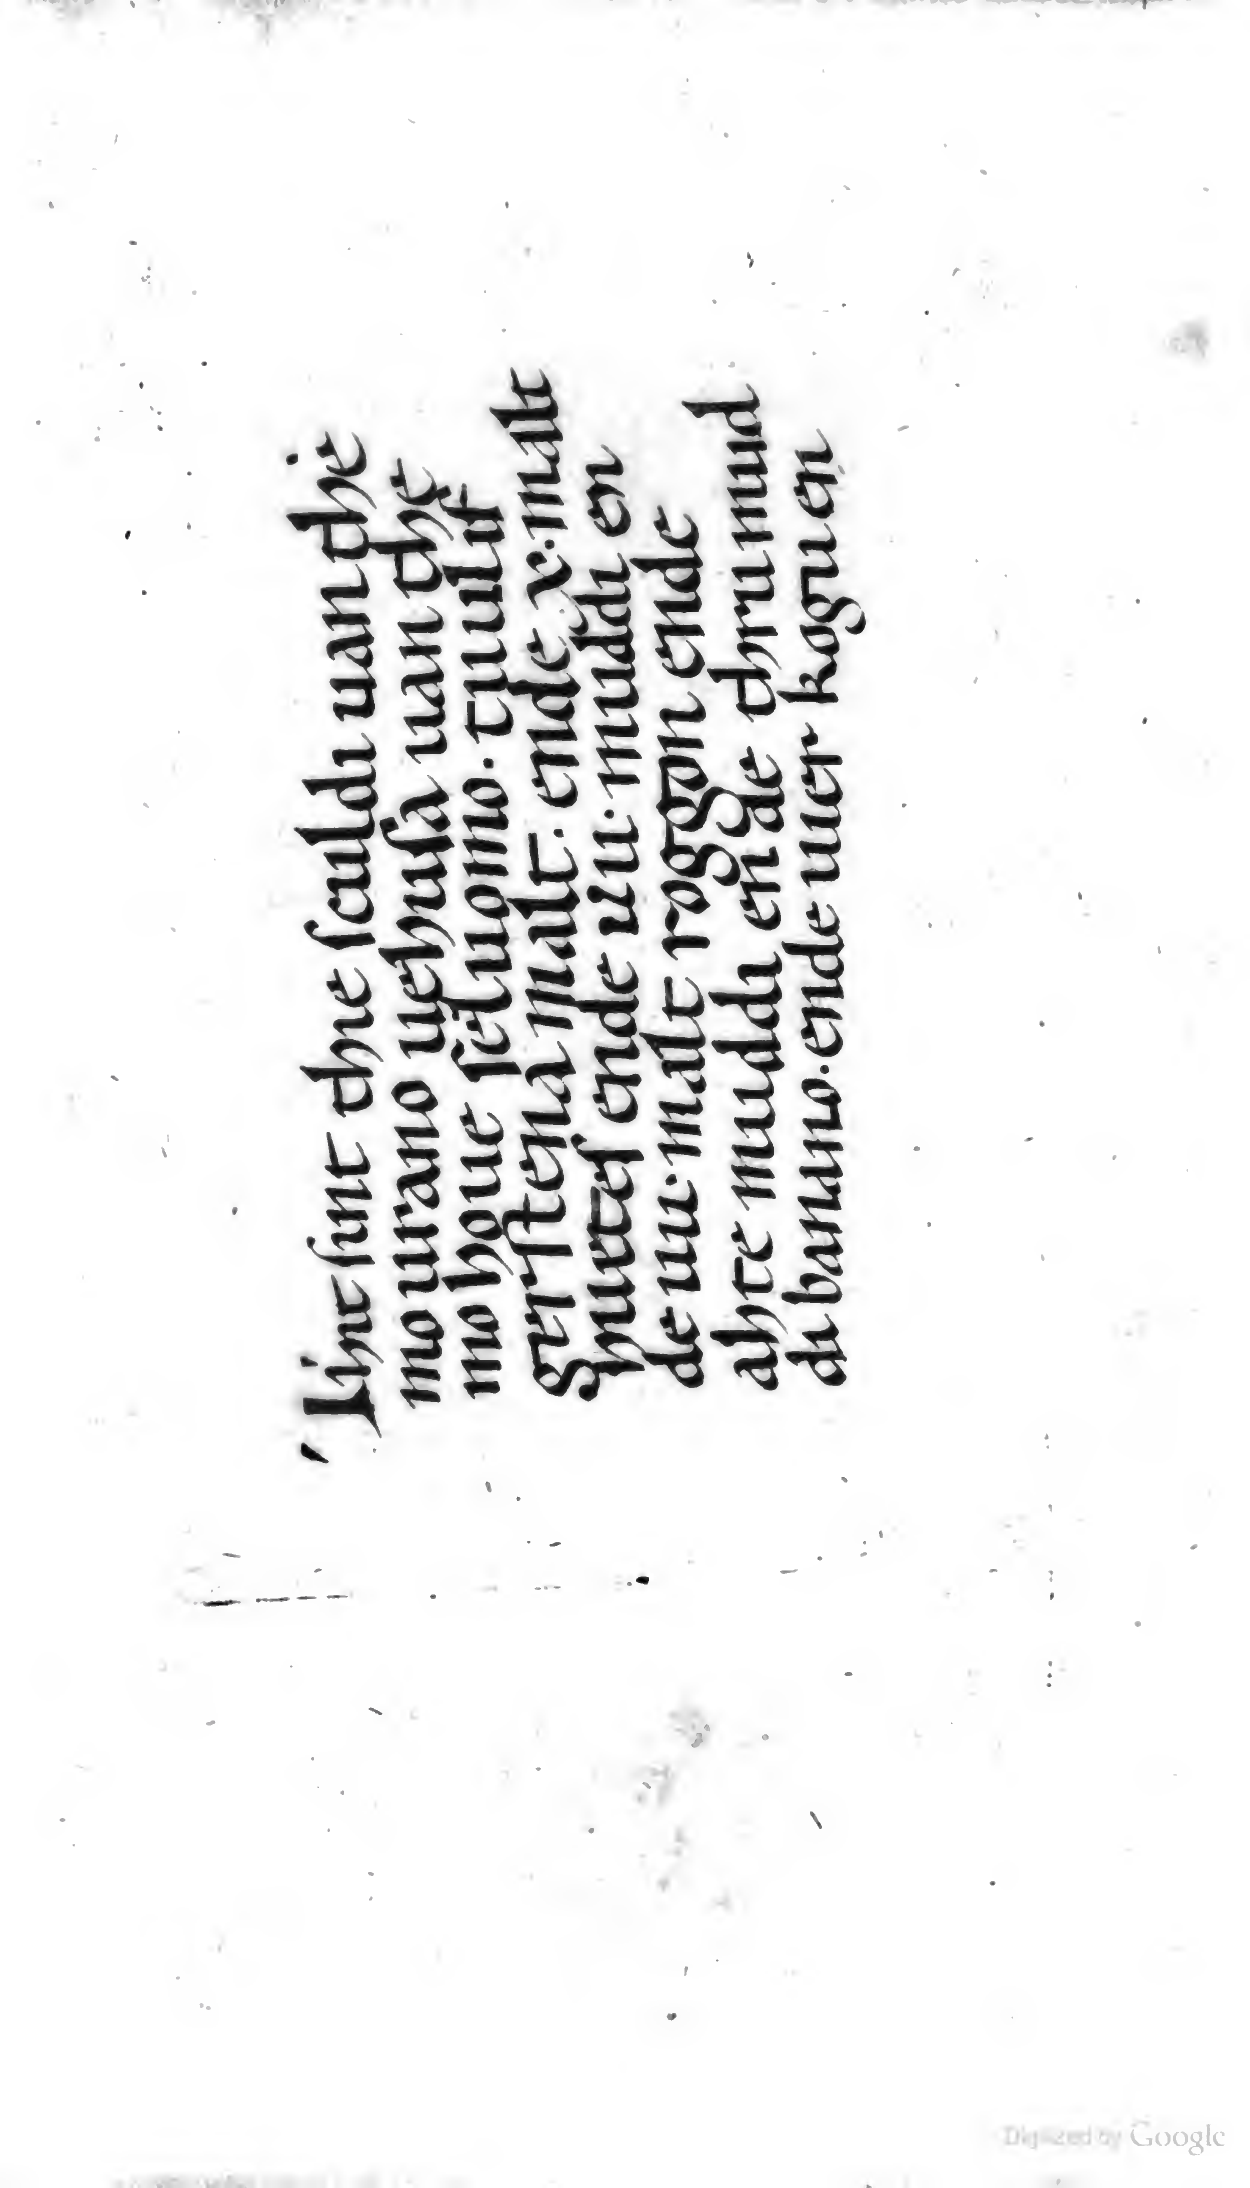 Thit sint thie sculdi uan the
mo urano uehusa uan the
mo houe seluomo. tuulif
gerstena malt. ende x. malt
huetes ende iiii. muddi en
de iiii. malt roggon ende
ahte muddi en de thru mud
di banano. ende uier kogii en
Digitized by Google